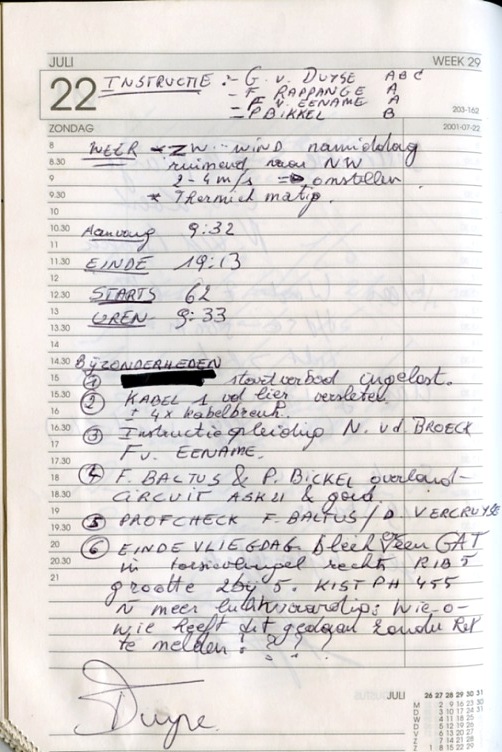 JULI WEEK 29
22 INSTRUCTIE :- G. v. DUYSE A B C
- F. RAPPANGE A
- F. v. EENAME A
- P BIKKEL B
203-162
ZONDAG 2001-07-22
8 WEER * ZW.- WIND namiddag
8.30 ruimend naar NW
9 2-4 m/s => omstellen
9.30 * Thermiek matig.
10
10.30 Aanvang 9:32
11
11.30 EINDE 19:13
12
12.30 STARTS 62
13 UREN 9:33
13.30
14
14.30 BIJZONDERHEDEN
15 1 startverbod ingelost.
15.30 2 KABEL 1 vd lier versleten
16 + 4x kabelbreuk.
16.30 3 Instructieopleiding N. v.d BROECK
17 F v. EENAME.
17.30
18 4 F. BALTUS & P. BICKEL overland-
18.30 CIRCUIT ASK21 & goud.
19
19.30 5 PROFCHECK F. BALTUS / D VERCRUYSE
20 6 EINDE VLIEGDAG bleek er een GAT
20.30 in torsievleugel rechts RIB 5
21 grootte 2 by 5. KIST PH 455
n meer luchtwaardig; wie-o-
wie heeft dit gedaan zonder het
te melden ! ? ? ?
Duyse.
JULI 26 27 28 29 30 31
M 2 9 16 23 30
D 3 10 17 24 31
W 4 11 18 25
D 5 12 19 26
V 6 13 20 27
Z 7 14 21 28
Z 1 8 15 22 29